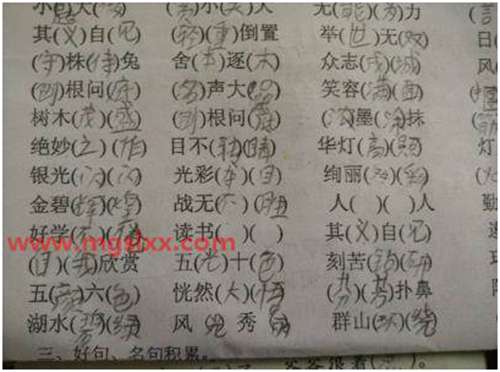 小(题)大(做) 小( )大人 无(能)(为)力
其(义)自(见) (轻)(重)倒置 举(世)无(双) 日
(守)株(待)兔 舍(本)逐(末) 众志(成)(城) 风
(刨)根问(底) (名)声大(噪) 笑容(满)(面)
树木(茂)(盛) (刨)根问(底) 墨 抹
绝妙(之)(作) 目不(转)(睛) 华灯(高)(照) 灯
银光(闪)(闪) 光彩(夺)(目) 绚丽(多)(彩)
金碧(辉)(煌) 战无(不)(胜) 人( )( )人 勤
www.mgslxx.com
好学(不)( ) 读书( )( ) 其(义)自(见)
(自)(我)欣赏 五(光)十(色) 刻苦(钻)(研)
五(颜)六(色) 恍然(大)(悟) (芬)(芳)扑鼻
湖水(碧)(绿) 风 秀 群山(环)(绕)
三、好句、名句积累。